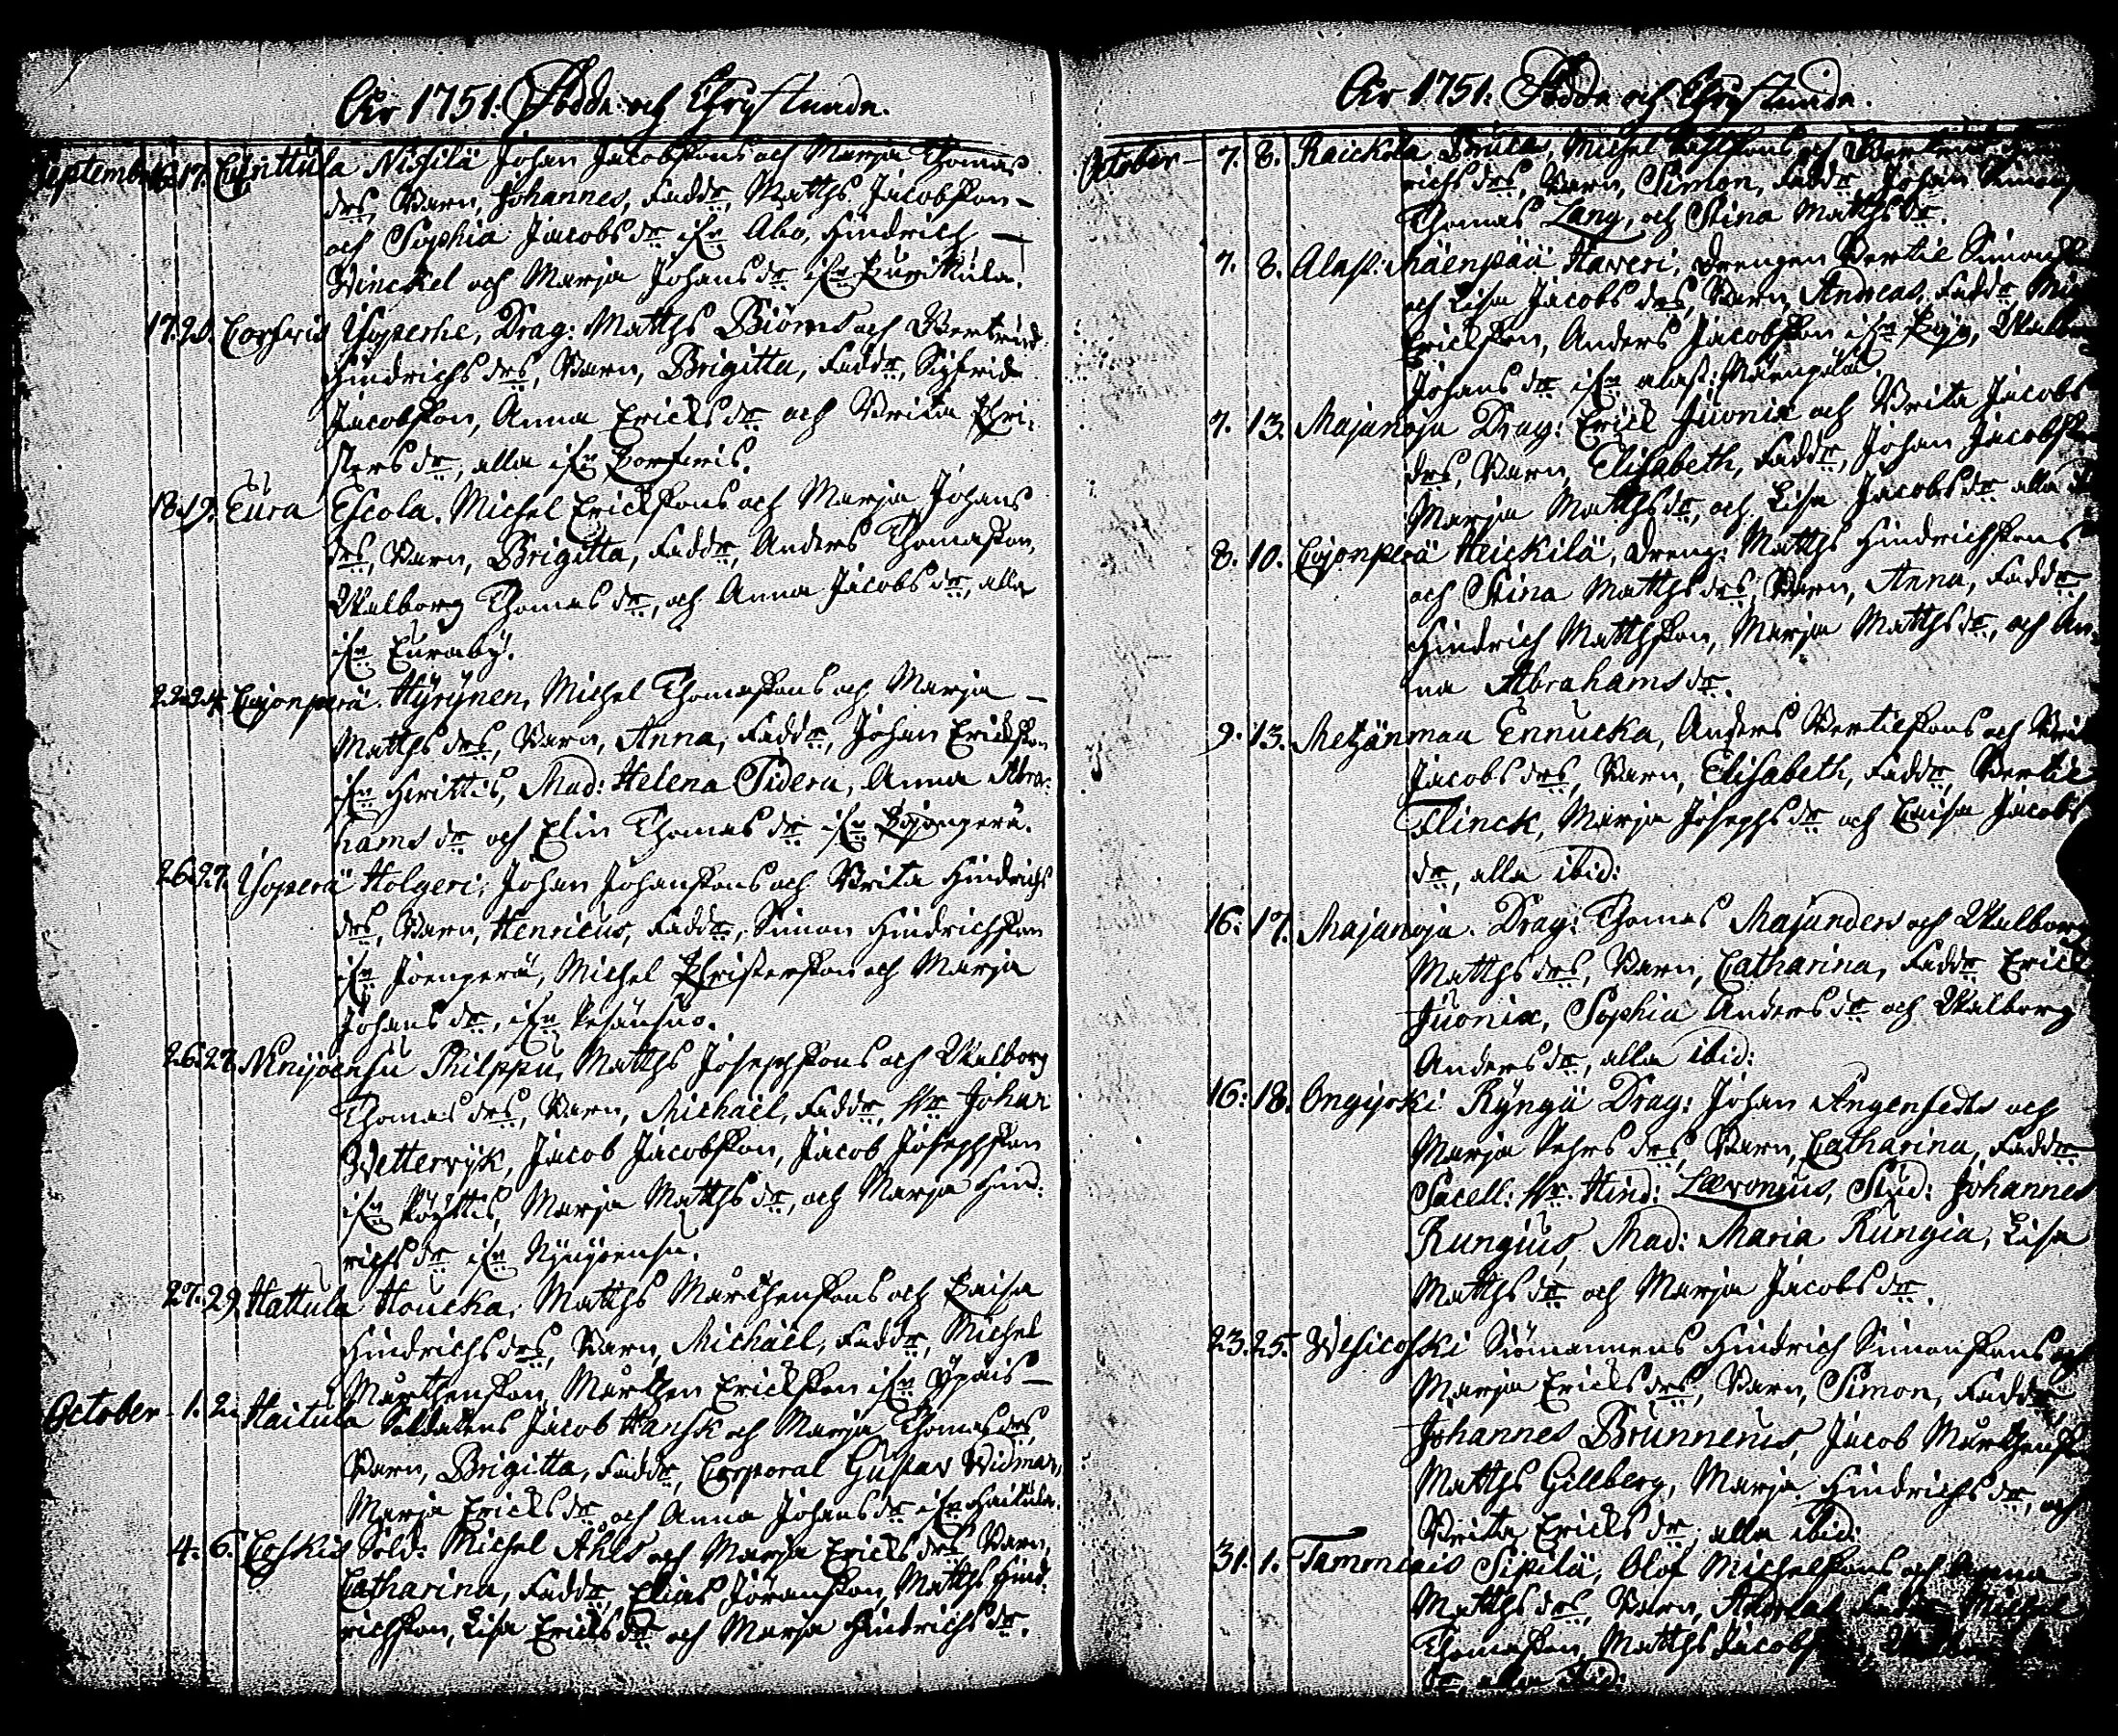 Åhr 1751. Födde och Christnade.
September 16. 17. Nihilä Johan Jacobssons och Marja Thomas
drs, Barn, Johannes, Faddr, Matths Jacobsson
och Sophia Jacobs dr ifrn Abo, Hindrich
Winckel och Marja Johans dr ifrn
17. 20. Corfwis Yloperhe, Drag: Matths Biörns och Bertrud
Hindrichs drs, Barn, Brigitta, Faddr, Sigfrid
Jacobsson, Anna Ericks dr och Brita Chri-
sters dr, alla ifrn Corfwis.
18. 19. Eura Escola. Michel Erickssons och Marja Johans
drs, Barn, Brigitta, Faddr, Anders Thomasson,
Walborg Thomas dr, och Anna Jacobs dr, alla
ifrn Euraby.
22. 24. Cojonperä Hyrynen, Michel Thomassons och Marja
Matths drs, Barn, Anna, Faddr, Johan Ericksson
ifrn Hirittis, Mad: Helena Sidera, Anna Abra-
hams dr och Elin Thomas dr ifrn Cojonperä.
26. 27. Yloperä Holgeri, Johan Johanssons och Brita Hindrichs
drs, Barn, Henricus, Faddr, Simon Hindrichsson
ifrn Joenperä, Michel Christersson och Marja
Johans dr, ifrn Pesänsuo.
26. 27. Ninijoensu Philppu, Matths Josephssons och Walborg
Thomas drs, Barn, Michaël, Faddr, Hr Johan
Wetterwijk, Jacob Jacobsson, Jacob Josephsson
ifrn Pöyttis, Marja Matths dr, och Marja Hind-
richs dr ifrn Nijnijoensu.
27. 29. Hattula Houcka, Matths Mårthenssons och Caisa
Hindrichs drs, Barn, Michaël, Faddr, Michel
Mårthensson, Mårthen Ericksson ifrn Ypäis
October 1. 2. Haitula Soldatens Jacob Hansk och Marja Thomas drs,
Barn, Brigitta, Faddr, Corporal Gustav Widman,
Marja Ericks dr och Anna Johans dr ifrn Haitula.
4. 6. Coskis Sold: Michel Ahls och Marja Ericks drs Barn,
Catharina, Faddr, Elias Jöransson, Matths Hind-
richsson, Lisa Ericks dr och Marja Hindrichs dr.
Åhr 1751. Födde och Christnade.
October 7. 8. Raickola Michel och Bertrud
richs drs, Barn, Simon, Faddr Johan
Thomas Lang, och Stina Matths dr.
7. 8. Alast: Mäenpää Haveri, Drengen Bertil Simons
och Lisa Jacobs drs, Barn, Andreas, Faddr
Ericksson, Anders Jacobsson
Johans dr ifrn alast: Mäenpää.
7. 13. Majanoja Drag: Erick Juonia och Brita Jacobs
drs, Barn, Elisabeth, Faddr, Johan Jacobsson
Marja Matths dr, och Lisa Jacobs dr alla
8. 10. Cojonperä Heickilä, Dreng: Matths Hindrichssons
och Stina Matths drs, Barn, Anna, Faddr,
Hindrich Matthsson, Marja Matths dr, och An-
na Abrahams dr.
9. 13. Metzänmaa Ennucka, Anders Bertilssons och
Jacobs drs, Barn, Elisabeth, Faddr, Bertil
Flinck, Marja Josephs dr och Caisa Jacobs
dr, alla ibid:
16. 17. Majanoja. Drag: Thomas Majanders och Walborg
Matths drs, Barn, Catharina, Faddr Erick
Juonia, Sophia Anders dr och Walborg
Anders dr, alla ibid:
16. 18. Ongijoki Ryngä Drag: Johan Angenfedts och
Marja Pehrs drs, Barn, Catharina, Faddr
Sacell: Hr. Hind: Lævonius, Stud: Johannes
Rungius, Mad: Maria Rungia, Lisa
Matths dr och Marja Jacobs dr.
23. 25. Wesicoski Siömannens Hindrich Simonssons och
Marja Ericks drs, Barn, Simon, Faddr
Johannes Brunnerus, Jacob Mårthens
Matths Gillberg, Marja Hindrichs dr, och
Brita Ericks dr, alla ibid:
31. 1. Tammiais Sipilä, Olof Michelssons och Anna
Matths drs, Barn, Andreas, Michel
Thomasson, Matths Jacobsson
dr, alla ibid: